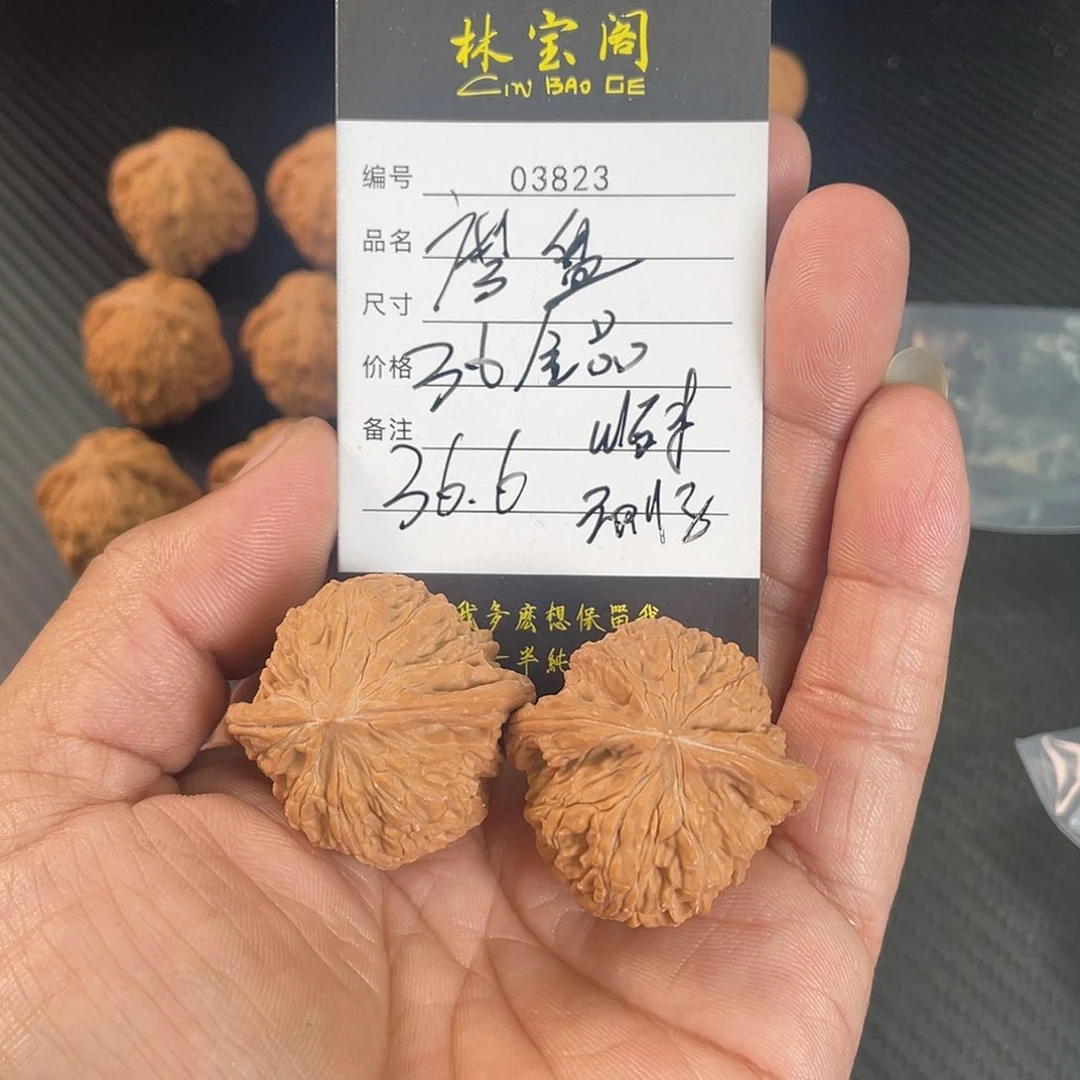 林宝阁
LIN BAO GE
编号 03823
品名 磨盘
尺寸
价格 36 全品
备注
36.6
我多麽想保留我
一半純